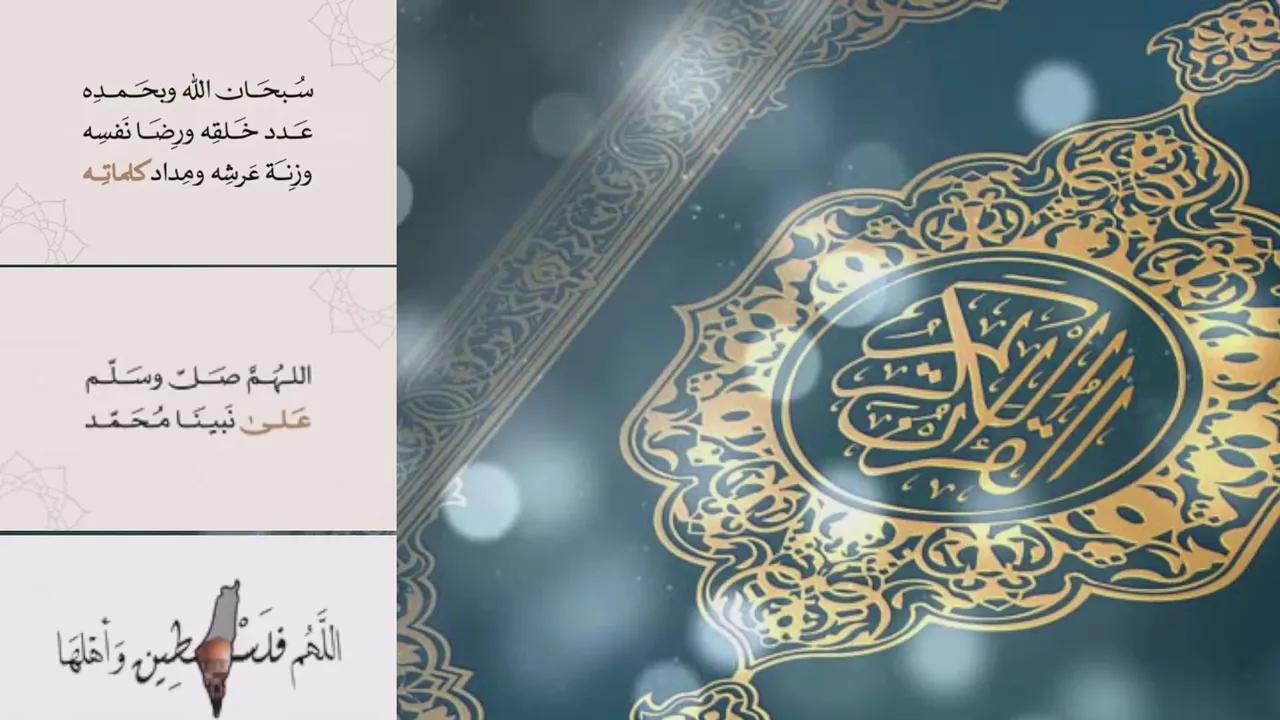 سُبحَـان الله وبحَـمـدِه
عَـدد خَـلقِه ورِضَـا نَفسِه
وزِنَـة عَرشِه ومِداد كلماتِـه
اللهُـمَّ صَـلِّ وسَـلّـم
عَـلـىٰ نَبينَـا مُحَـمّـد
اللَّهُم فِلَسْطِين وَأَهْلَهَا
القرآن الكريم